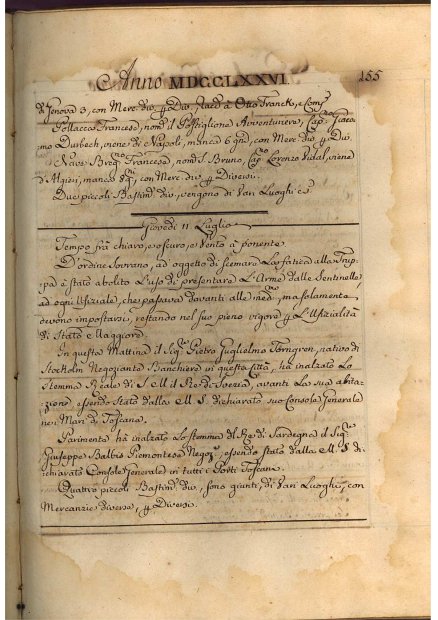 Anno MDCCLXXVI.
155
di Genova 3, con Merc. div. p Div. Racd. a Otto Franck, e Comp.
Pollacca Francese, nom. il Postiglione Avventuriere, Cap.no Giaco-
mo Durbech, viene di Napoli, manca 6 gni, con Merc. div. p Div.
Nave Brig.no Francese, nom. S. Bruno, Cap.no Lorenzo Vidal, viene
d'Algieri, manca gni, con Merc. div. p Diversi.
Due piccoli Bastim. div. vengono di Vari Luoghi
Giovedì 11 Luglio
Tempo frà chiaro, e oscuro, e Vento à ponente.
D'ordine Sovrano, ad oggetto di scemare La fatica alla Trup-
pa è stato abolito L'uso di presentare L'Arme dalle Sentinelle,
ad ogni Ufiziale, che passava davanti alle med.me, ma solamente
devono impostarsi, restando nel suo pieno vigore p L'Ufizialità
di Stato e Maggiore
In questa Mattina il Sig.re Pietro Guglielmo Törngren, nativo di
Stockolm Negoziante Banchiere in questa Città, hà inalzato Lo
Stemma Reale di S. M. il Rè di Svezia, avanti La sua abita-
zione, essendo Stato dalla M. S. dichiarato suo Console Generale
nei Mari di Toscana.
Parimente hà inalzato Lo Stemma del Rè di Sardegna il Sig.re
Giuseppe Balbis Piemontese Negoz., essendo stato dalla M. S. di-
chiarato Console Generale in tutti i Porti Toscani.
Quatro piccoli Bastim. div. sono giunti, di Vari Luoghi, con
Mercanzie diverse, p Diversi.